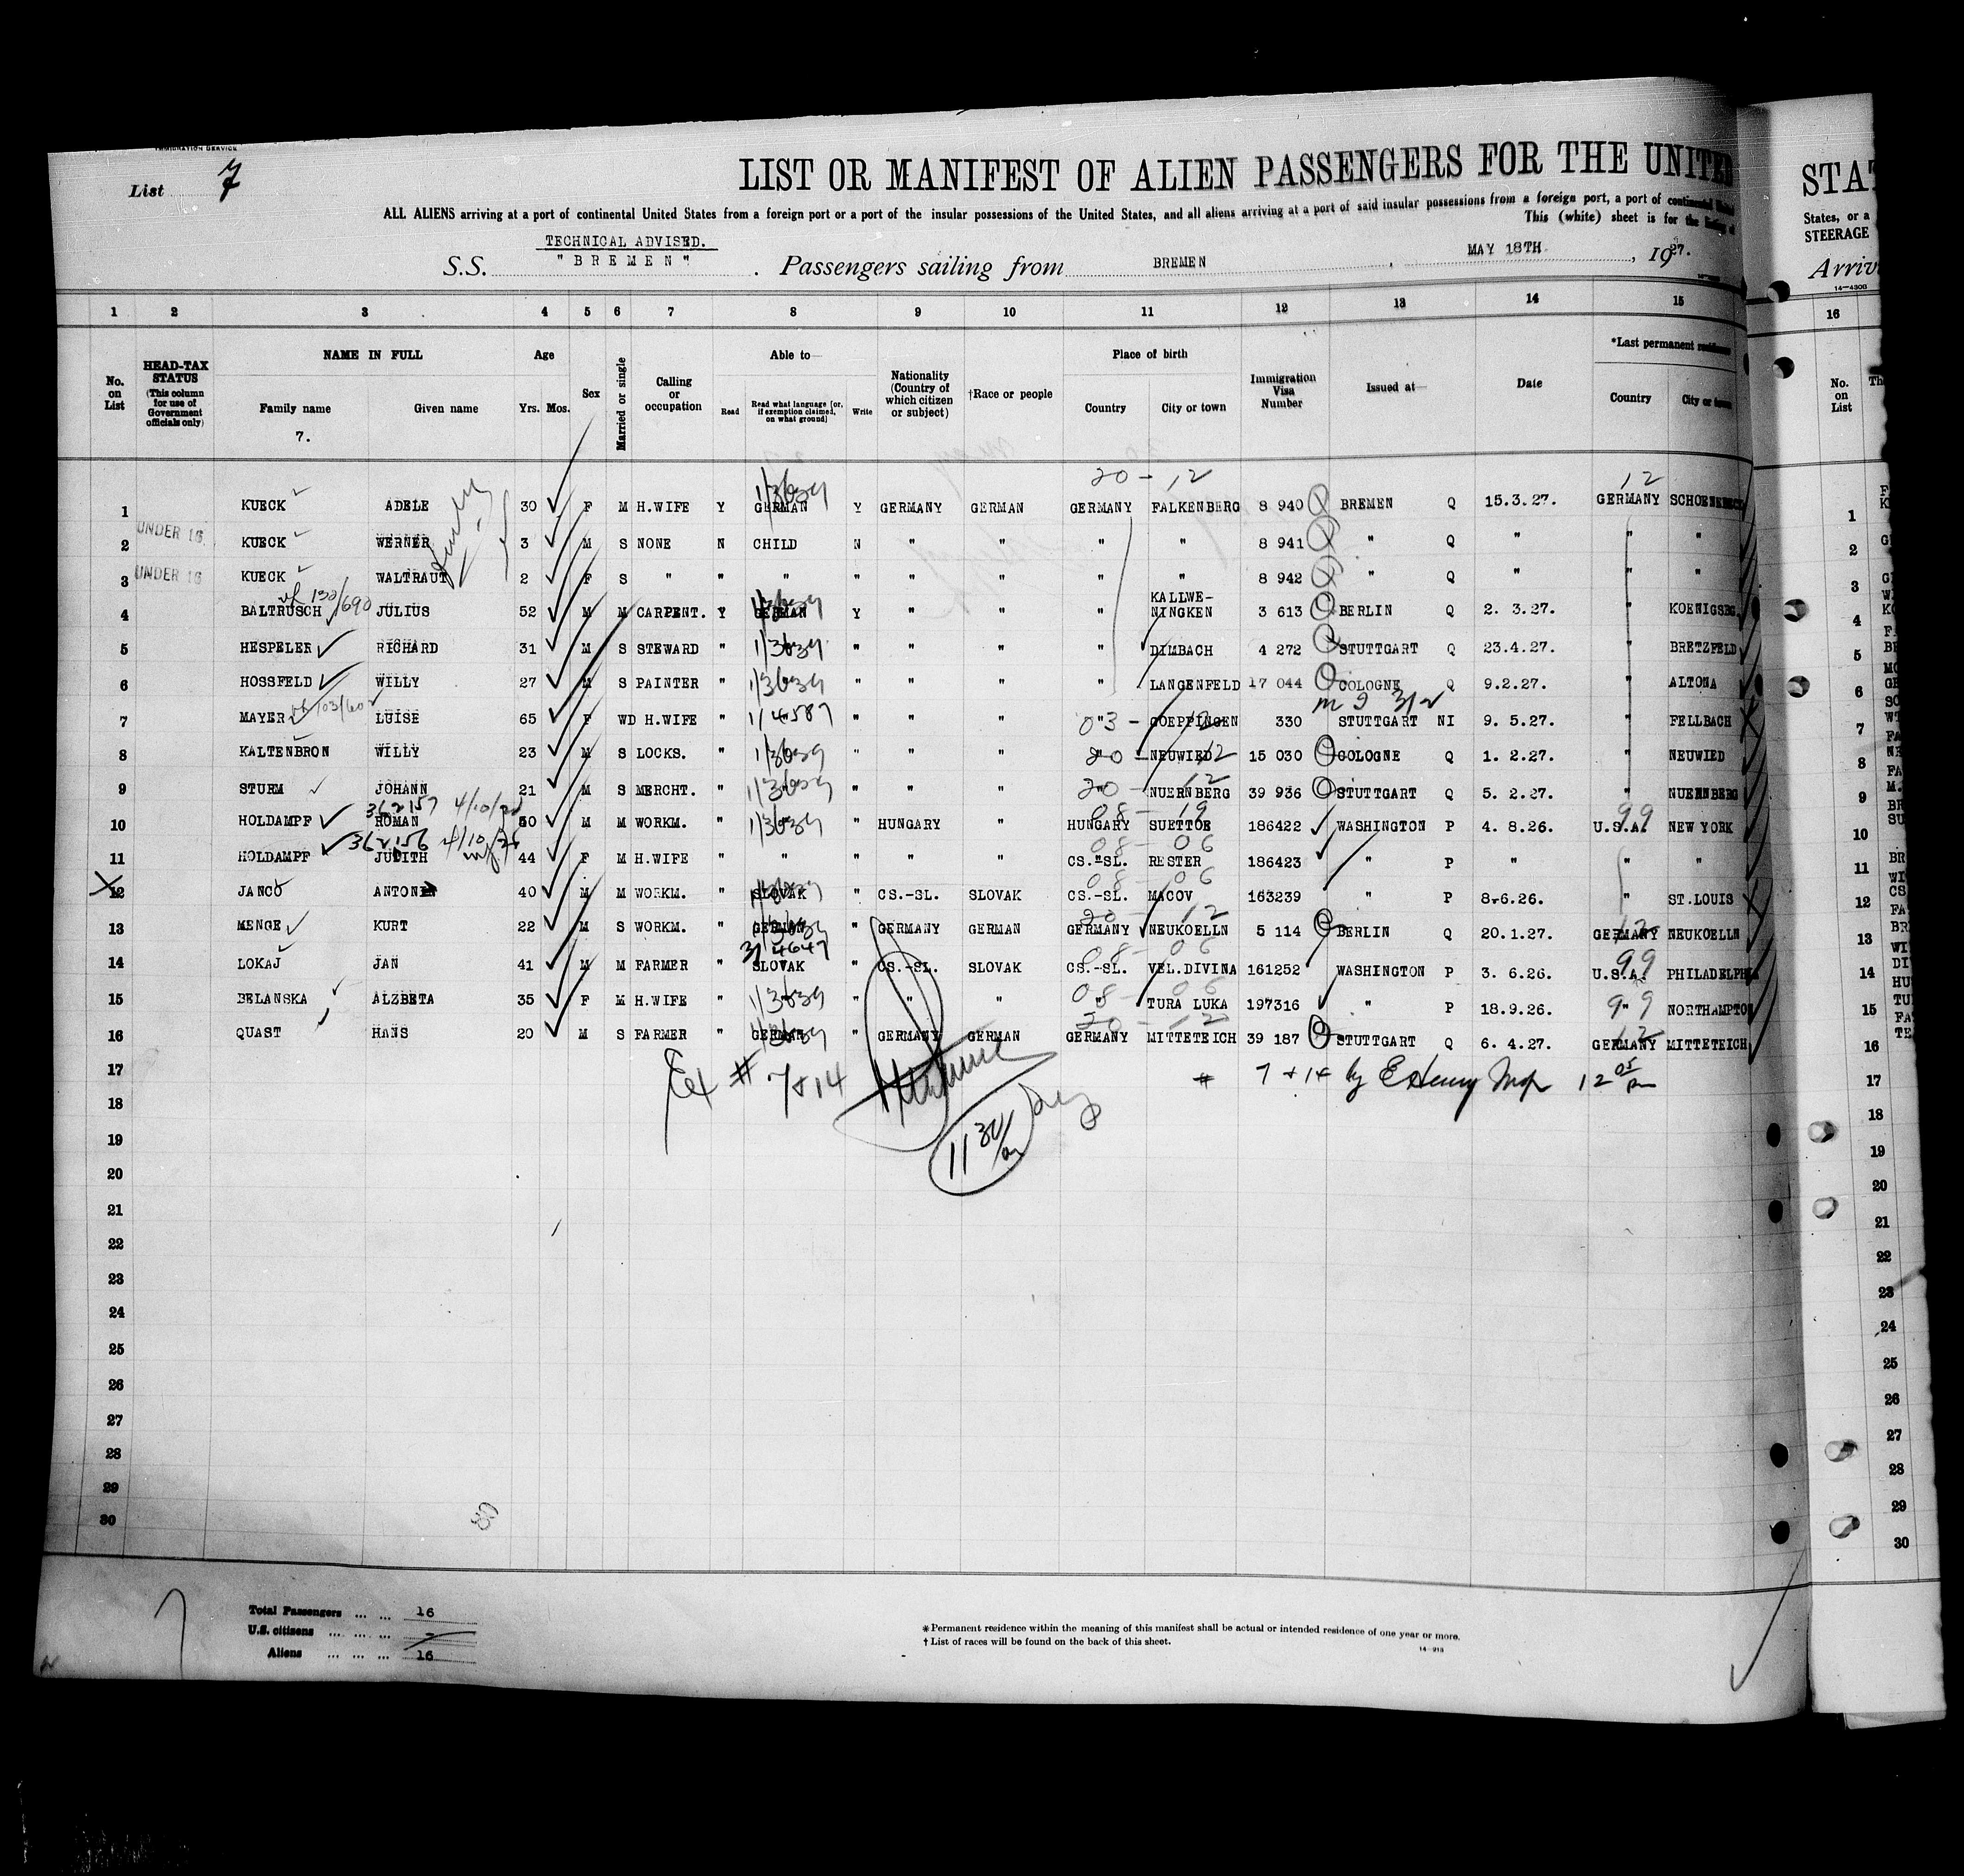 IMMIGRATION SERVICE
List 7
LIST OR MANIFEST OF ALIEN PASSENGERS FOR THE UNITED
STAT
ALL ALIENS arriving at a port of continental United States from a foreign port or a port of the insular possessions of the United States, and all aliens arriving at a port of said insular possessions from a foreign port, a port of continental United
States, or a
This (white) sheet is for the listing of
STEERAGE
TECHNICAL ADVISED.
S.S. "BREMEN". Passengers sailing from BREMEN, MAY 18TH, 1927.
Arriv
14—430B
1 2 3 4 5 6 7 8 9 10 11 12 13 14 15 16
No. on List
HEAD-TAX STATUS (This column for use of Government officials only)
NAME IN FULL
Family name
7.
Given name
Age
Yrs. Mos.
Sex
Married or single
Calling or occupation
Able to—
Read
Read what language [or, if exemption claimed, on what ground]
Write
Nationality (Country of which citizen or subject)
†Race or people
Place of birth
Country
City or town
Immigration Visa Number
Issued at—
Date
*Last permanent residence
Country
City or town
No. on List
20 - 12 12
1 KUECK ADELE 30 F M H.WIFE Y GERMAN Y GERMANY GERMAN GERMANY FALKENBERG 8 940 BREMEN Q 15.3.27. GERMANY SCHOENEBECK 1
2 UNDER 16 KUECK WERNER 3 M S NONE N CHILD N " " " " 8 941 " Q " " " 2
3 UNDER 16 KUECK WALTRAUT 2 F S " " " " " " " " 8 942 " Q " " " 3
4 BALTRUSCH JULIUS 52 M M CARPENT. Y GERMAN Y " " " KALLWE-NINGKEN 3 613 BERLIN Q 2. 3.27. " KOENIGSBG. 4
5 HESPELER RICHARD 31 M S STEWARD " " " " " " DIMBACH 4 272 STUTTGART Q 23.4.27. " BRETZFELD 5
6 HOSSFELD WILLY 27 M S PAINTER " " " " " " LANGENFELD 17 044 COLOGNE Q 9.2.27. " ALTONA 6
7 MAYER LUISE 65 F WD H.WIFE " " " " " " GOEPPINGEN 330 STUTTGART NI 9. 5.27. " FELLBACH 7
8 KALTENBRON WILLY 23 M S LOCKS. " " " " " " NEUWIED 15 030 COLOGNE Q 1. 2.27. " NEUWIED 8
9 STURM JOHANN 21 M S MERCHT. " " " " " " NUERNBERG 39 936 STUTTGART Q 5. 2.27. " NUERNBERG 9
362157 4/10/28
10 HOLDAMPF ROMAN 50 M M WORKM. " " " HUNGARY " HUNGARY SUETTOE 186422 WASHINGTON P 4. 8.26. U.S.A. NEW YORK 10
362156 4/10/28
11 HOLDAMPF JUDITH 44 F M H.WIFE " " " " " CS.-SL. RESTER 186423 " P " " " 11
12 JANCO ANTONIN 40 M M WORKM. " SLOVAK " CS.-SL. SLOVAK CS.-SL. MACOV 163239 " P 8.6.26. " ST.LOUIS 12
13 MENGE KURT 22 M S WORKM. " GERMAN " GERMANY GERMAN GERMANY NEUKOELLN 5 114 BERLIN Q 20.1.27. GERMANY NEUKOELLN 13
14 LOKAJ JAN 41 M M FARMER " SLOVAK " CS.-SL. SLOVAK CS.-SL. VEL.DIVINA 161252 WASHINGTON P 3. 6.26. U.S.A. PHILADELPHIA 14
15 BELANSKA ALZBETA 35 F M H.WIFE " " " " " " TURA LUKA 197316 " P 18.9.26. " NORTHAMPTON 15
16 QUAST HANS 20 M S FARMER " GERMAN " GERMANY GERMAN GERMANY MITTETEICH 39 187 STUTTGART Q 6. 4.27. GERMANY MITTETEICH 16
17 Ex # 7 & 14 # 7 & 14 by E Henry 12 05 pm 17
18 18
11 30/am
19 19
20 20
21 21
22 22
23 23
24 24
25 25
26 26
27 27
28 28
29 29
30 30
Total Passengers ... ... 16
U.S. citizens ... ... ... -
Aliens ... ... ... 16
* Permanent residence within the meaning of this manifest shall be actual or intended residence of one year or more.
† List of races will be found on the back of this sheet.
14—213